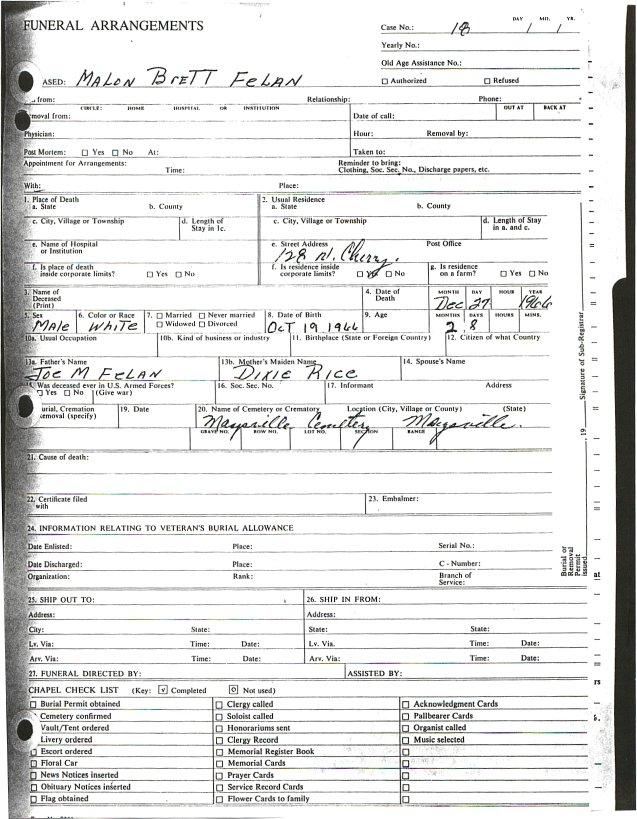 FUNERAL ARRANGEMENTS
DAY MO. YR.
Case No.: 18 / /
Yearly No.:
Old Age Assistance No.:
ASED: MALON BRETT FELAN
☐ Authorized ☐ Refused
from: Relationship: Phone:
CIRCLE: HOME HOSPITAL OR INSTITUTION OUT AT BACK AT
moval from: Date of call:
Physician: Hour: Removal by:
Post Mortem: ☐ Yes ☐ No At: Taken to:
Appointment for Arrangements: Reminder to bring:
Time: Clothing, Soc. Sec. No., Discharge papers, etc.
With: Place:
1. Place of Death 2. Usual Residence
a. State b. County a. State b. County
c. City, Village or Township d. Length of Stay in 1c. c. City, Village or Township d. Length of Stay in a. and c.
e. Name of Hospital or Institution e. Street Address Post Office
128 N. Cherry.
f. Is place of death inside corporate limits? ☐ Yes ☐ No f. Is residence inside corporate limits? ☐ Yes ☐ No g. Is residence on a farm? ☐ Yes ☐ No
3. Name of Deceased (Print) 4. Date of Death MONTH DAY HOUR YEAR
Dec 27 1966
5. Sex 6. Color or Race 7. ☐ Married ☐ Never married ☐ Widowed ☐ Divorced 8. Date of Birth 9. Age MONTHS DAYS HOURS MINS.
MALE WHITE OCT 19 1966 2 8
10a. Usual Occupation 10b. Kind of business or industry 11. Birthplace (State or Foreign Country) 12. Citizen of what Country
13a. Father's Name 13b. Mother's Maiden Name 14. Spouse's Name
JOE M FELAN DIXIE RICE
15. Was deceased ever in U.S. Armed Forces? 16. Soc. Sec. No. 17. Informant Address
☐ Yes ☐ No (Give war)
urial, Cremation emoval (specify) 19. Date 20. Name of Cemetery or Crematory Location (City, Village or County) (State)
Marysville Cemetery Marysville.
GRAVE NO. ROW NO. LOT NO. SECTION RANGE
21. Cause of death:
22. Certificate filed with 23. Embalmer:
24. INFORMATION RELATING TO VETERAN'S BURIAL ALLOWANCE
Date Enlisted: Place: Serial No.:
Date Discharged: Place: C - Number:
Organization: Rank: Branch of Service:
25. SHIP OUT TO: 26. SHIP IN FROM:
Address: Address:
City: State: State: State:
Lv. Via: Time: Date: Lv. Via. Time: Date:
Arv. Via: Time: Date: Arv. Via: Time: Date:
27. FUNERAL DIRECTED BY: ASSISTED BY:
CHAPEL CHECK LIST (Key: ☑ Completed ☐ Not used)
☐ Burial Permit obtained ☐ Clergy called ☐ Acknowledgment Cards
Cemetery confirmed ☐ Soloist called ☐ Pallbearer Cards
Vault/Tent ordered ☐ Honorariums sent ☐ Organist called
Livery ordered ☐ Clergy Record ☐ Music selected
☐ Escort ordered ☐ Memorial Register Book ☐
☐ Floral Car ☐ Memorial Cards ☐
☐ News Notices inserted ☐ Prayer Cards ☐
☐ Obituary Notices inserted ☐ Service Record Cards ☐
☐ Flag obtained ☐ Flower Cards to family ☐
Signature of Sub-Registrar
19
Burial or Removal Permit issued
at
rs